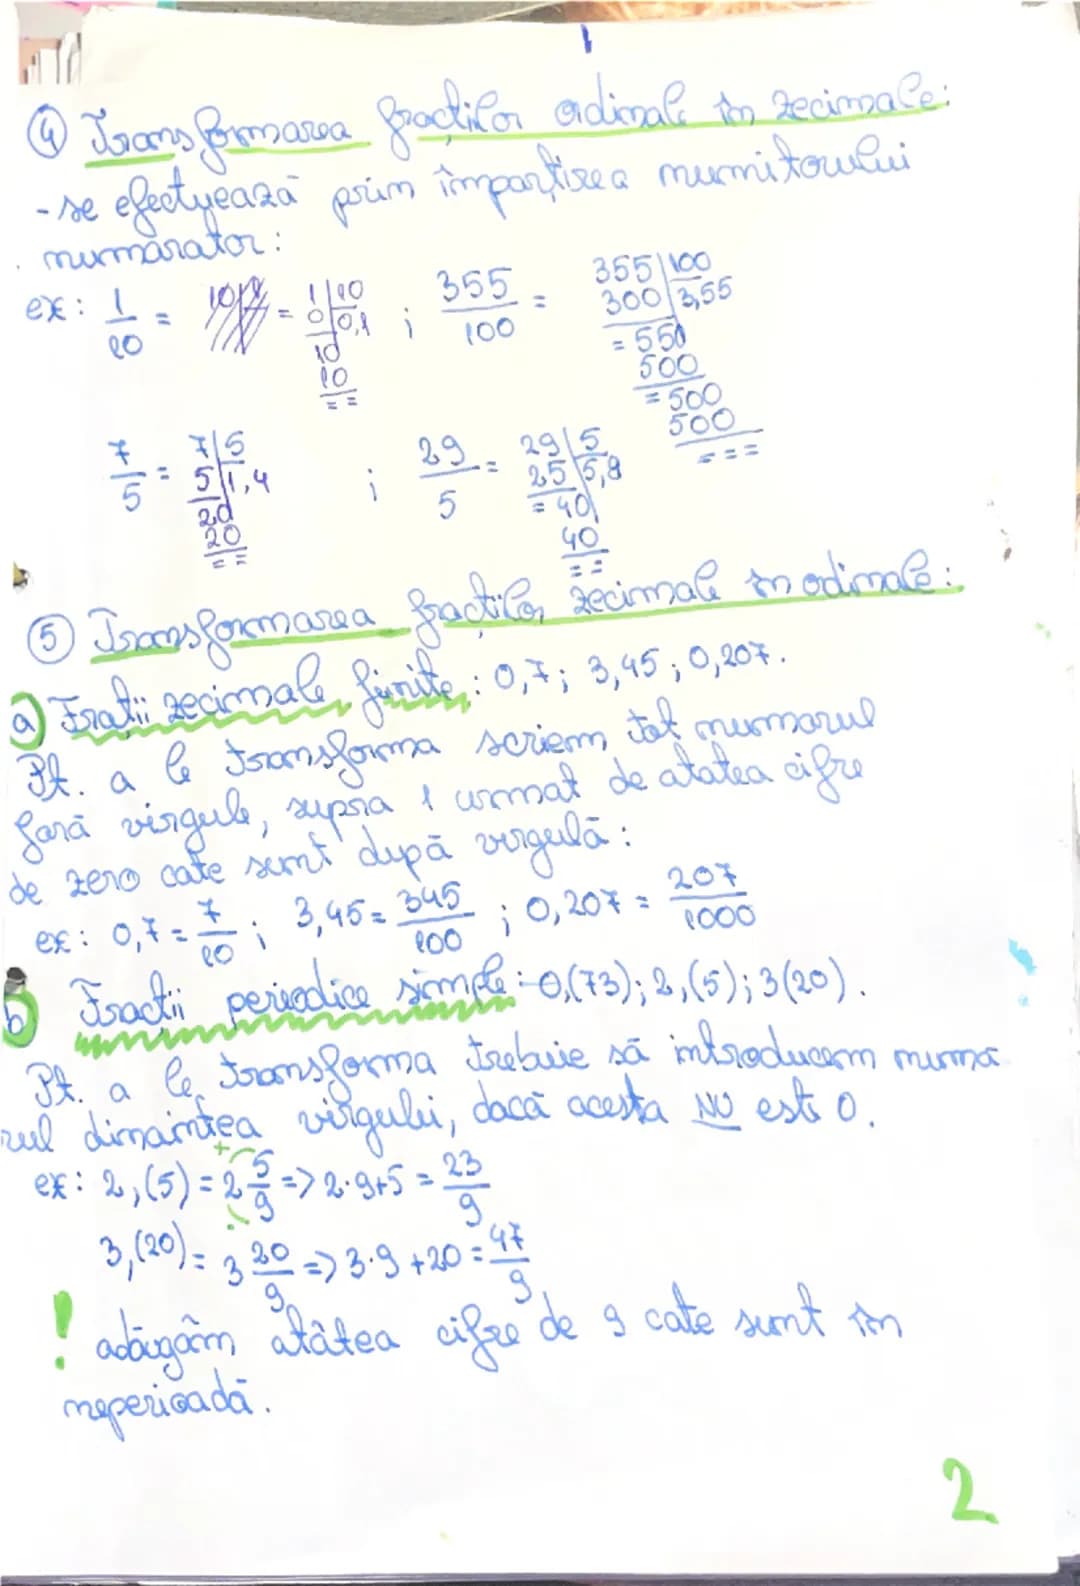 ④ Transformarea fracților ordinale în zecimale:
- se efectuează prin împartirea numitorului
numărător:
ex: 1/10 = = 1 | 10 ; 355/100 = 355 | 100
0 | 0,1 300 | 3,55
10 = 550
10 500
= = = 500
500
= = =
7/5 = 7 | 5 ; 29/5 = 29 | 5
5 | 1,4 25 | 5,8
20 = 40
20 40
= = = =
⑤ Transformarea fracților zecimale în odinale:
a) Frații zecimale finite: 0,7; 3,45; 0,207.
Pt. a le transforma scriem tot numarul
fară virgule, supra 1 urmat de atatea cifre
de zero cate sunt după virgulă:
ex: 0,7 = 7/10 ; 3,45 = 345/100 ; 0,207 = 207/1000
b) Fracții periodice simple: 0,(73); 2,(5); 3(20).
Pt. a le transforma trebuie să introducem numa
rul dinaintea virgului, dacă acesta NU este 0.
ex: 2,(5) = 2 5/9 => 2·9+5 = 23/9
3,(20) = 3 20/9 => 3·9+20 = 47/9
! adăugăm atâtea cifre de 9 cate sunt în
neperioadă.
2